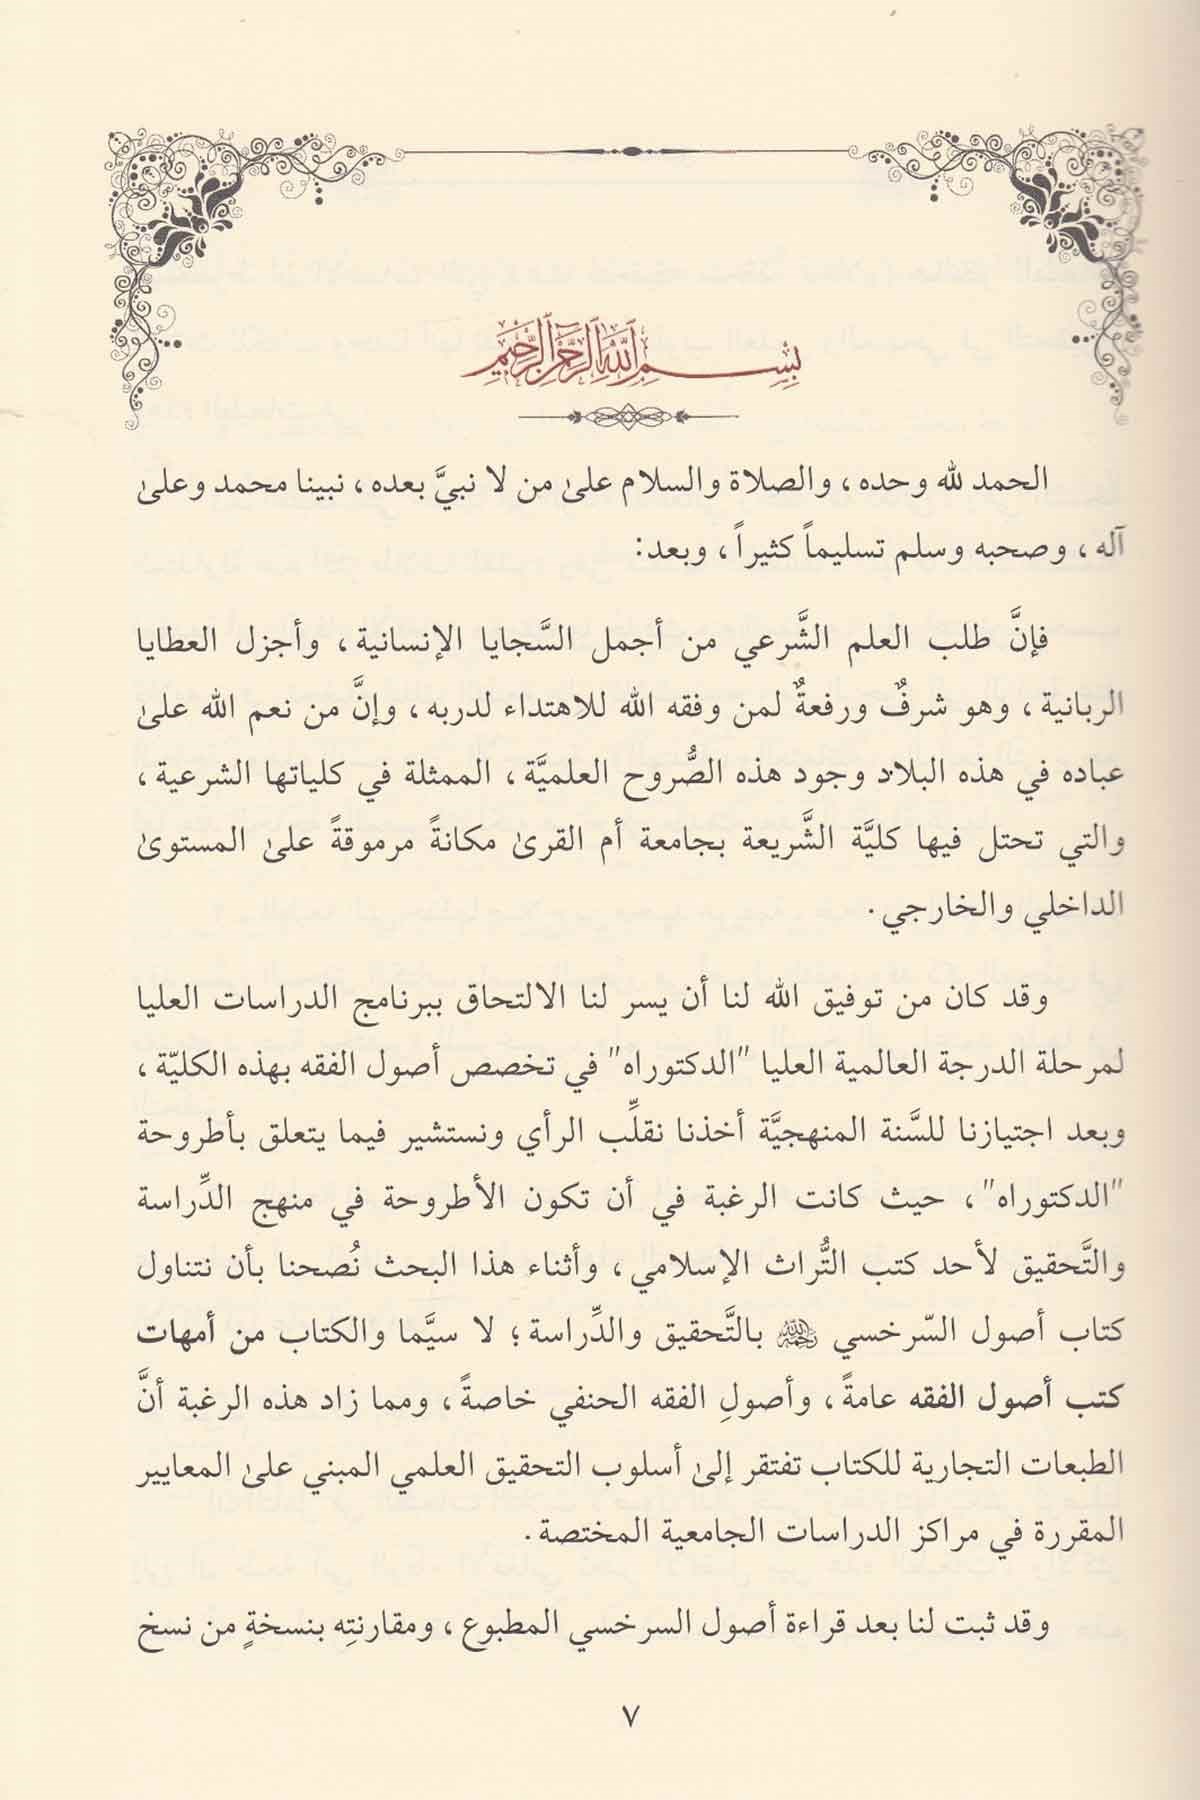 بسم الله الرحمن الرحيم
الحمد لله وحده، والصلاة والسلام علىٰ من لا نبيَّ بعده، نبينا محمد وعلىٰ
آله، وصحبه وسلم تسليماً كثيراً، وبعد:
فإنَّ طلب العلم الشَّرعي من أجمل السَّجايا الإنسانية، وأجزل العطايا
الربانية، وهو شرفٌ ورفعةٌ لمن وفقه الله للاهتداء لدربه، وإنَّ من نعم الله علىٰ
عباده في هذه البلاد وجود هذه الصُّروح العلميَّة، الممثلة في كلياتها الشرعية،
والتي تحتل فيها كليَّة الشَّريعة بجامعة أم القرىٰ مكانةً مرموقةً علىٰ المستوىٰ
الداخلي والخارجي.
وقد كان من توفيق الله لنا أن يسر لنا الالتحاق ببرنامج الدراسات العليا
لمرحلة الدرجة العالمية العليا "الدكتوراه" في تخصص أصول الفقه بهذه الكليّة،
وبعد اجتيازنا للسَّنة المنهجيَّة أخذنا نقلِّب الرأي ونستشير فيما يتعلق بأطروحة
"الدكتوراه"، حيث كانت الرغبة في أن تكون الأطروحة في منهج الدِّراسة
والتَّحقيق لأحد كتب التُّراث الإسلامي، وأثناء هذا البحث نُصحنا بأن نتناول
كتاب أصول السّرخسي رحمه الله بالتَّحقيق والدِّراسة؛ لا سيَّما والكتاب من أمهات
كتب أصول الفقه عامةً، وأصولِ الفقه الحنفي خاصةً، ومما زاد هذه الرغبة أنَّ
الطبعات التجارية للكتاب تفتقر إلىٰ أسلوب التحقيق العلمي المبني علىٰ المعايير
المقررة في مراكز الدراسات الجامعية المختصة.
وقد ثبت لنا بعد قراءة أصول السرخسي المطبوع، ومقارنتِه بنسخةٍ من نسخ
٧